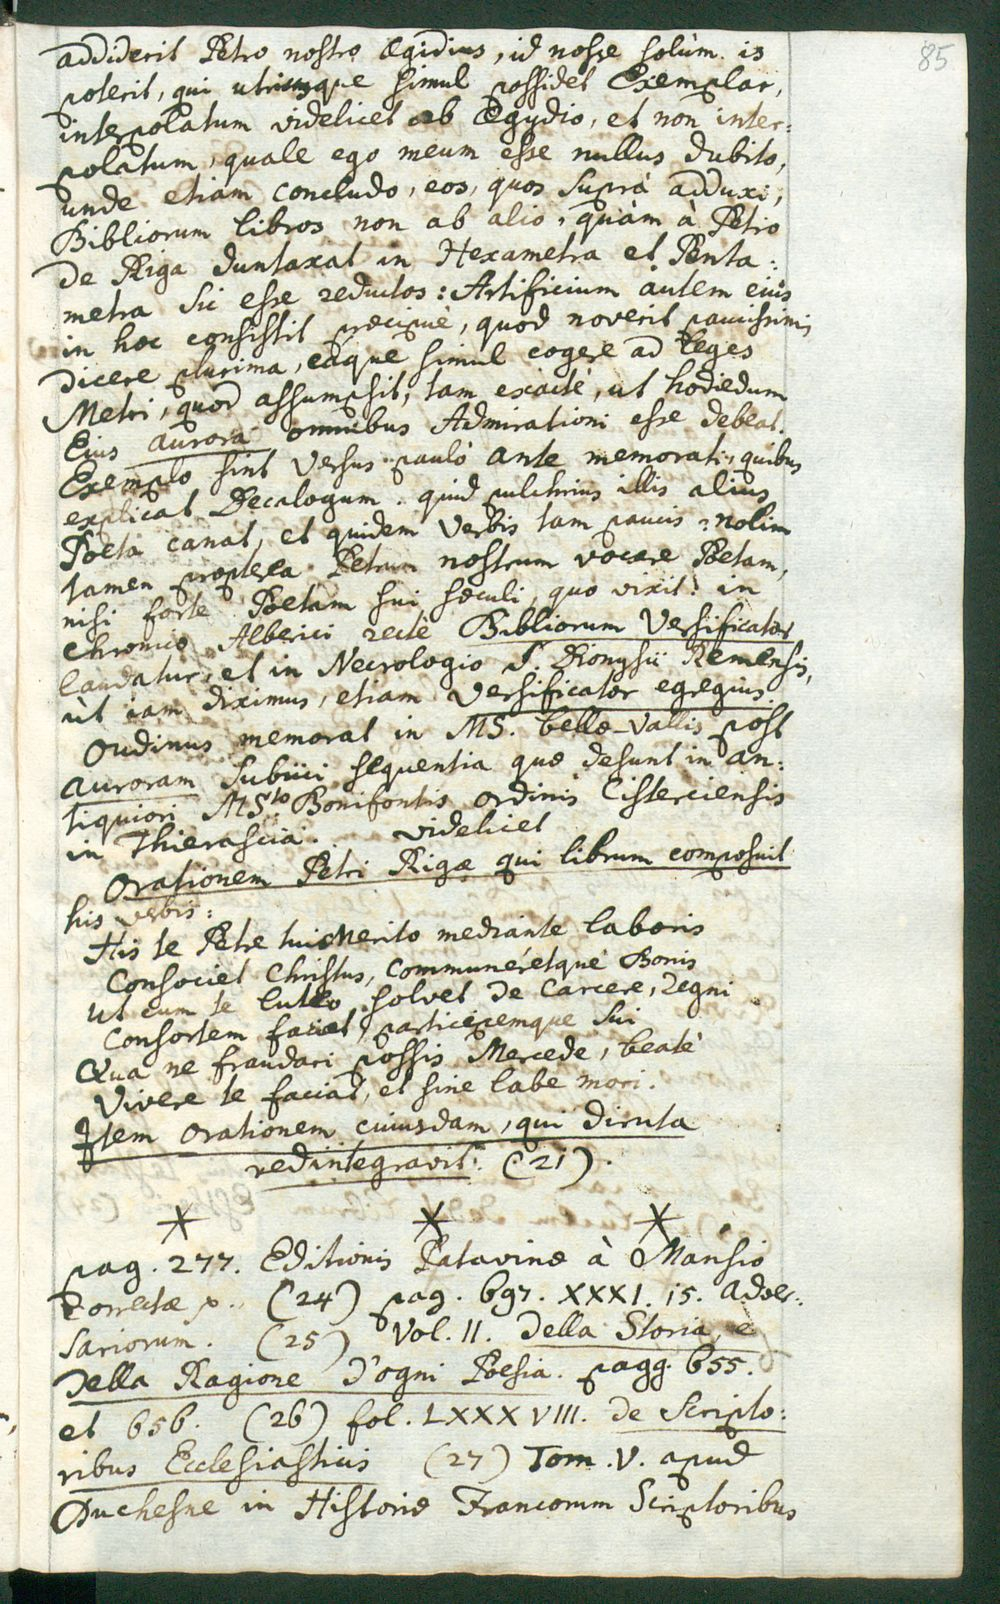 85
addiderit Petro nostro Ægidius, id nosse solùm is
poterit, qui utrumque simul possidet Exemplar,
interpolatum videlicet ab Ægydio, et non inter:
polatum, quale ego meum esse nullus dubito,
unde etiam concludo, eos, quos suprà adduxi,
Bibliorum libros non ab alio, quàm à Petro
de Riga duntaxat in Hexametra et Penta:
metra sic esse reductos: Artificium autem eius
in hoc consistit præcipuè, quod noverit paucissimis
dicere plurima, eaque simul cogere ad leges
Metri, quod assumpsit, tam exactè, ut hodiedum
Eius aurora omnibus Admirationi esse debeat.
Exemplo sint Versus paulò ante memorati, quibus
explicat Decalogum. quid pulchrius illis alius
Poeta canat, et quidem Verbis tam paucis: nolim
tamen propterea Petrum nostrum vocare Poetam,
nisi forte Poetam sui sæculi, quo vixit: in
Chronico Alberici rectè Bibliorum Versificator
laudatur, et in Necrologio S. Dionysii Remensis,
ùt iam diximus, etiam Versificator egregius
Oudinus memorat in MS. bellæ-Vallis post
auroram subiici sequentia quæ desunt in an:
tiquiori MSto Bonifontis ordinis Cisterciensis
in Thierascia. videlicet
Orationem Petri Rigæ qui librum composuit
his verbis:
His te Petre tui Merito mediante laboris
Consociet Christus, communéretque Bonis
Ut cum te luteo solvet de Carcere, regni
Consortem faciat, participemque sui
Qua ne fraudari possis Mercede, beatè
Vivere te faciat, et sine labe mori.
Item orationem cuiusdam, qui diruta
redintegravit. (21).
* * *
pag. 277. Editionis Patavinæ à Mansio
Correctæ (24) pag. 697. XXXI. 15. Adver:
sariorum. (25) Vol. II. Della Storia, e
Della Ragione d'ogni Poesia. pagg. 655.
et 656. (26) fol. LXXXVIII. de Scripto:
ribus Ecclesiasticis (27) Tom. V. apud
Duchesne in Historiæ Francorum Scriptoribus